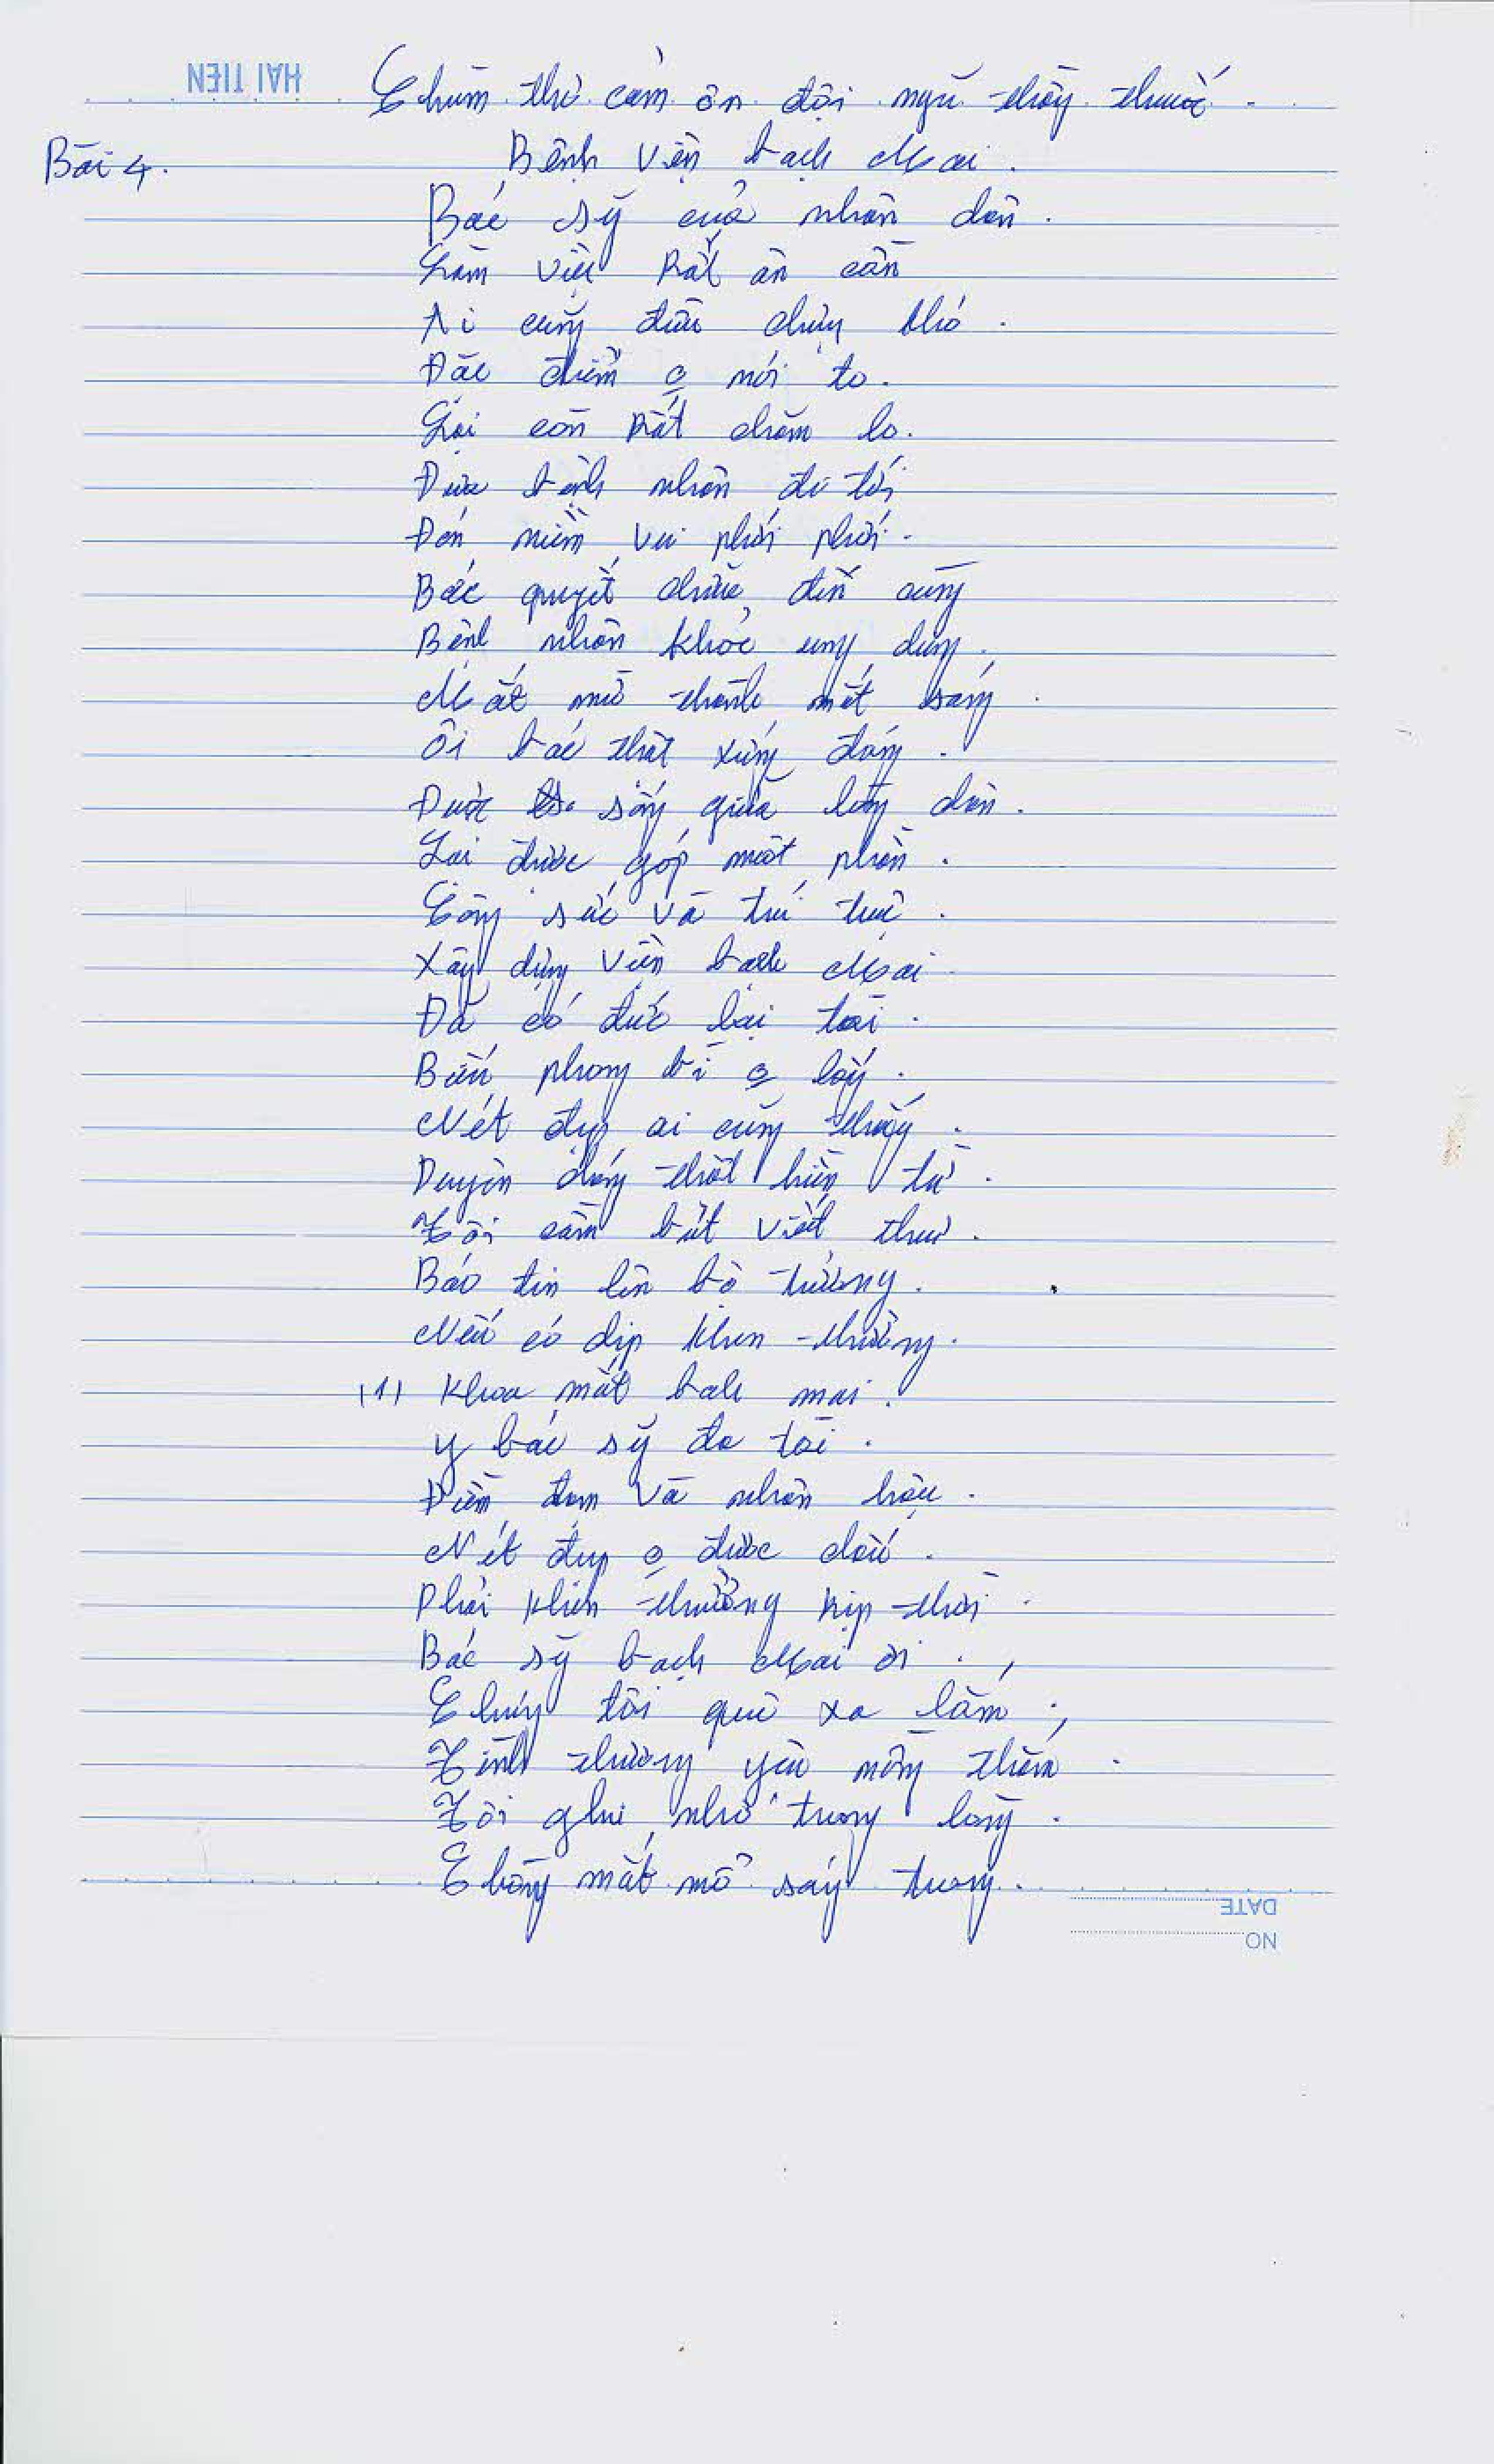 HẢI TIẾN
Chùm thơ cảm ơn đội ngũ thầy thuốc.
Bài 4. Bệnh viện bạch Mai.
Bác sỹ của nhân dân.
Làm việc Rất ân cần
Ai cũng đều chịu khó.
Đặc điểm o nói to.
Lại còn Rất chăm lo.
Đưa bệnh nhân đi tới
Đón niềm vui phơi phới.
Bác quyết chiến đến cùng
Bệnh nhân khỏe ung dung.
Mắt mờ thành mắt sáng.
Ôi bác thật xứng đáng.
Được sống giữa lòng dân.
Lại được góp một phần.
Công sức và trí tuệ.
Xây dựng viện bạch Mai
Đã có đức lại tài.
Biếu phong bì o lấy.
Nét đẹp ai cũng thấy.
Duyên dáng thật hiền từ.
Tôi cầm bút viết thư.
Báo tin lên bộ trưởng.
Nếu có dịp khen thưởng.
(1) Khoa mắt bạch mai.
y bác sỹ đa tài.
Điềm đạm và nhân hậu.
Nét đẹp o được dấu.
Phải khen thưởng kịp thời.
Bác sỹ bạch Mai ơi.
Chúng tôi quê xa lắm.
Tình thương yêu nồng thắm.
Tôi ghi nhớ trong lòng.
Chồng mắt mổ sáng trong.
DATE
NO